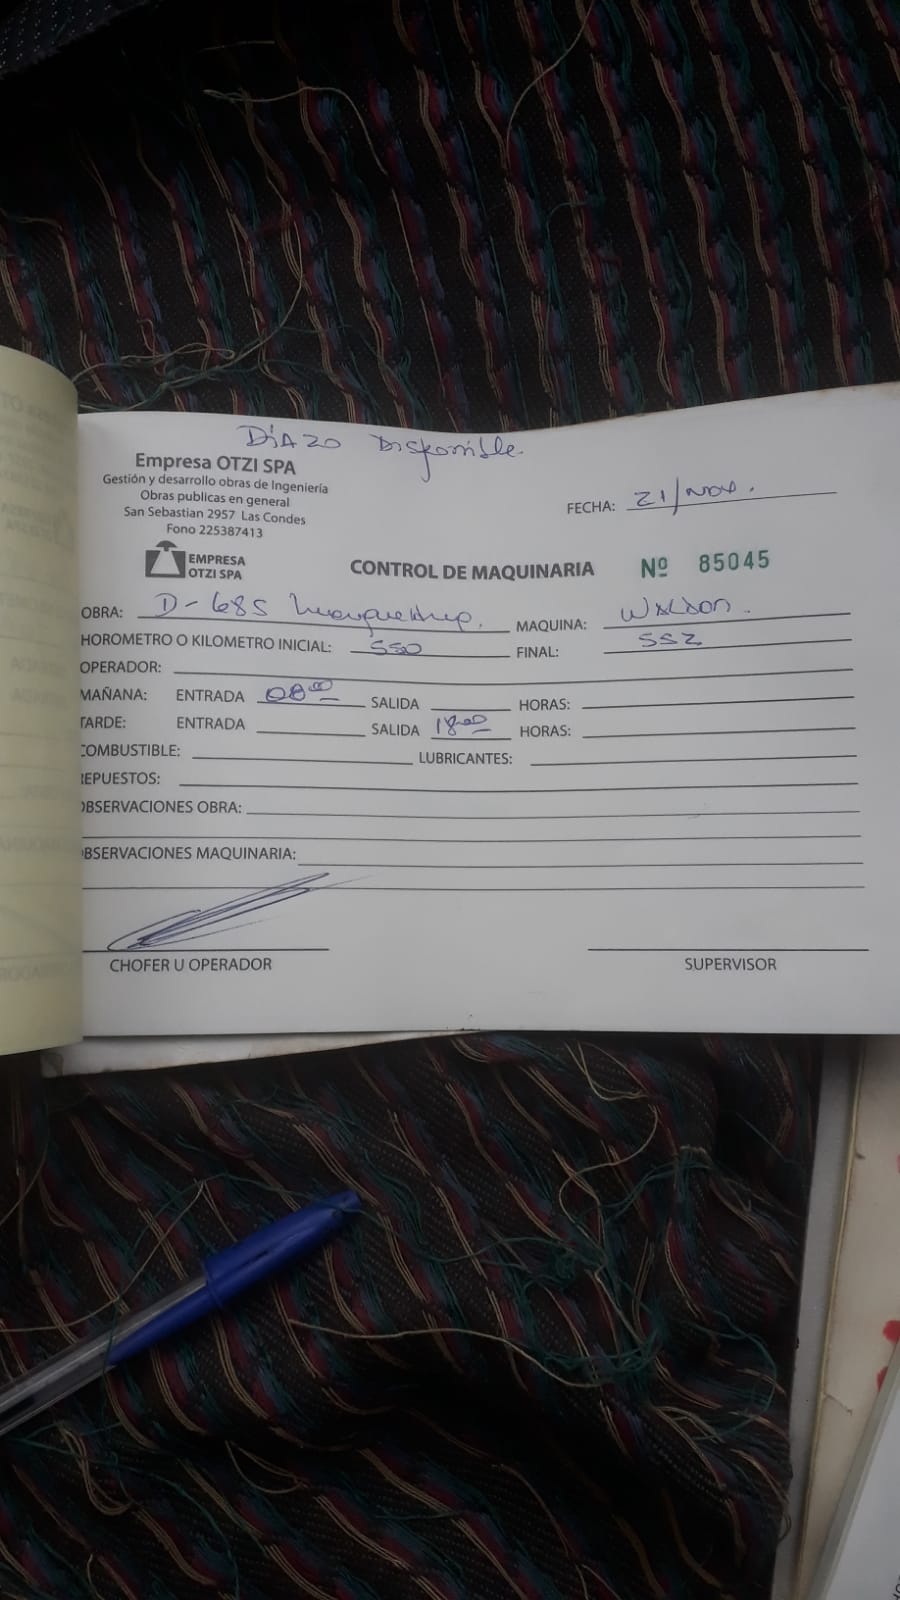 DiAZO Disponible.
Empresa OTZI SPA
Gestión y desarrollo obras de Ingeniería
Obras publicas en general
San Sebastian 2957 Las Condes
Fono 225387413
FECHA: 21/Nov.
EMPRESA
OTZI SPA
CONTROL DE MAQUINARIA Nº 85045
OBRA: D-685
MAQUINA: Waldon.
HOROMETRO O KILOMETRO INICIAL: 550 FINAL: 552
OPERADOR:
MAÑANA: ENTRADA 08⁰⁰ SALIDA HORAS:
TARDE: ENTRADA SALIDA 18⁰⁰ HORAS:
COMBUSTIBLE: LUBRICANTES:
REPUESTOS:
OBSERVACIONES OBRA:
OBSERVACIONES MAQUINARIA:
CHOFER U OPERADOR SUPERVISOR